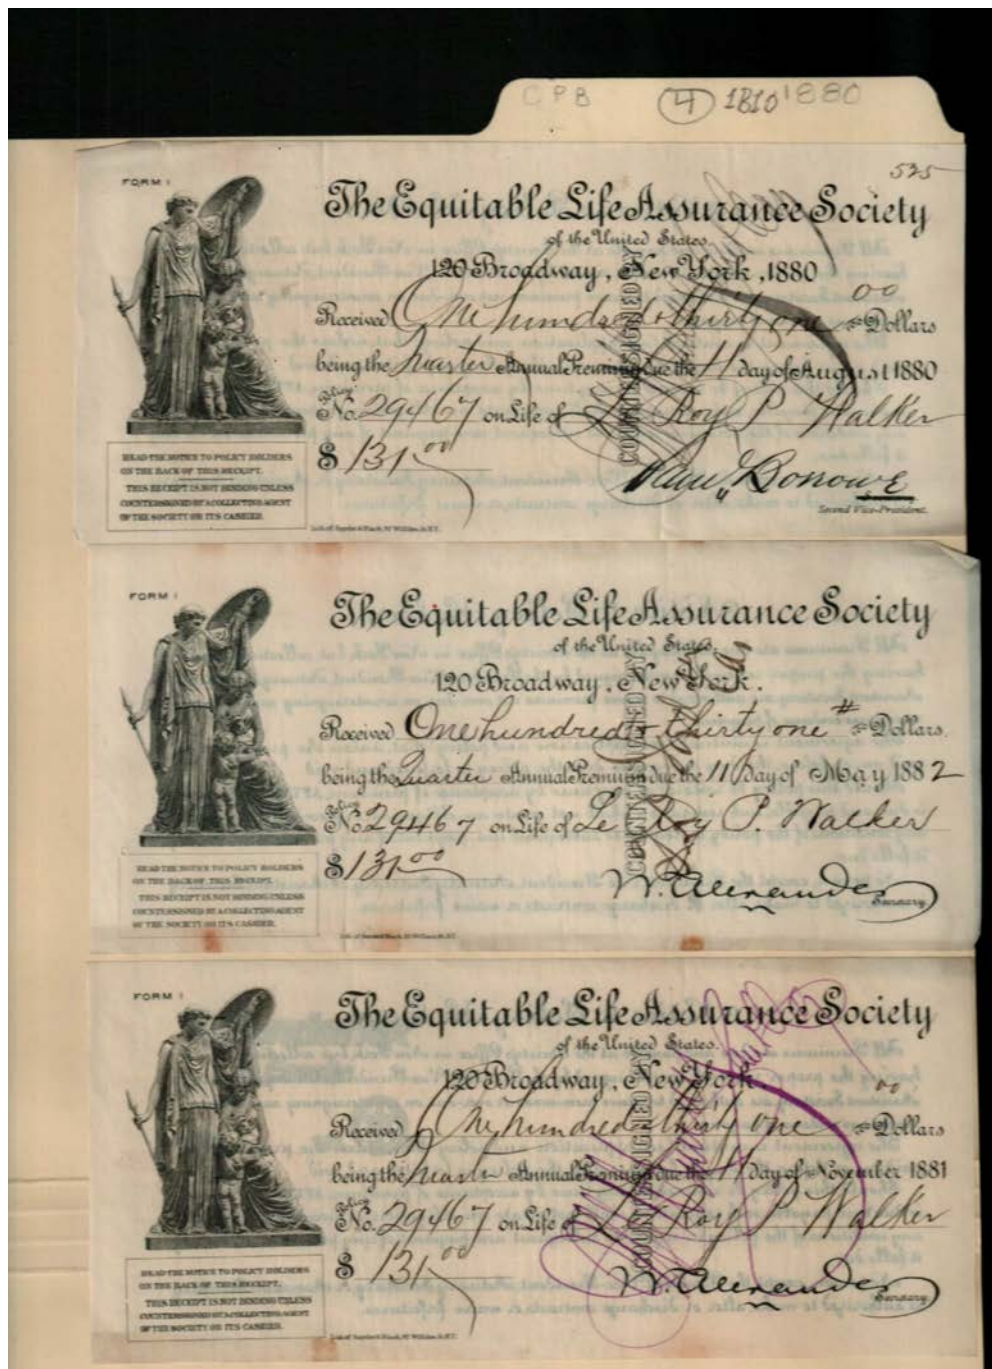 CPB 4 1810 1880
535
FORM 1
The Equitable Life Assurance Society
of the United States.
120 Broadway, New York, 1880
Received One hundred & thirty one 00 Dollars
being the Quarter Annual Premium due the 11 day of August 1880
Policy
No. 29467 on Life of Le Roy P Walker
$ 131 00
COUNTERSIGNED BY
Borrowe
Second Vice-President.
READ THE NOTICE TO POLICY HOLDERS
ON THE BACK OF THIS RECEIPT.
THIS RECEIPT IS NOT BINDING UNLESS
COUNTERSIGNED BY A COLLECTING AGENT
OF THE SOCIETY OR ITS CASHIER.
FORM 1
The Equitable Life Assurance Society
of the United States,
120 Broadway, New York.
Received One hundred & thirty one # Dollars
being the Quarter Annual Premium due the 11 day of May 1882
Policy
No. 29467 on Life of Le Roy P. Walker
$ 131 00
COUNTERSIGNED BY
W. Alexander
Secretary
READ THE NOTICE TO POLICY HOLDERS
ON THE BACK OF THIS RECEIPT.
THIS RECEIPT IS NOT BINDING UNLESS
COUNTERSIGNED BY A COLLECTING AGENT
OF THE SOCIETY OR ITS CASHIER.
FORM 1
The Equitable Life Assurance Society
of the United States.
120 Broadway, New York.
Received One hundred & thirty one 00 Dollars
being the Quarter Annual Premium due the 11 day of November 1881
Policy
No. 29467 on Life of Le Roy P Walker
$ 131 00
COUNTERSIGNED BY
W. Alexander
Secretary
READ THE NOTICE TO POLICY HOLDERS
ON THE BACK OF THIS RECEIPT.
THIS RECEIPT IS NOT BINDING UNLESS
COUNTERSIGNED BY A COLLECTING AGENT
OF THE SOCIETY OR ITS CASHIER.